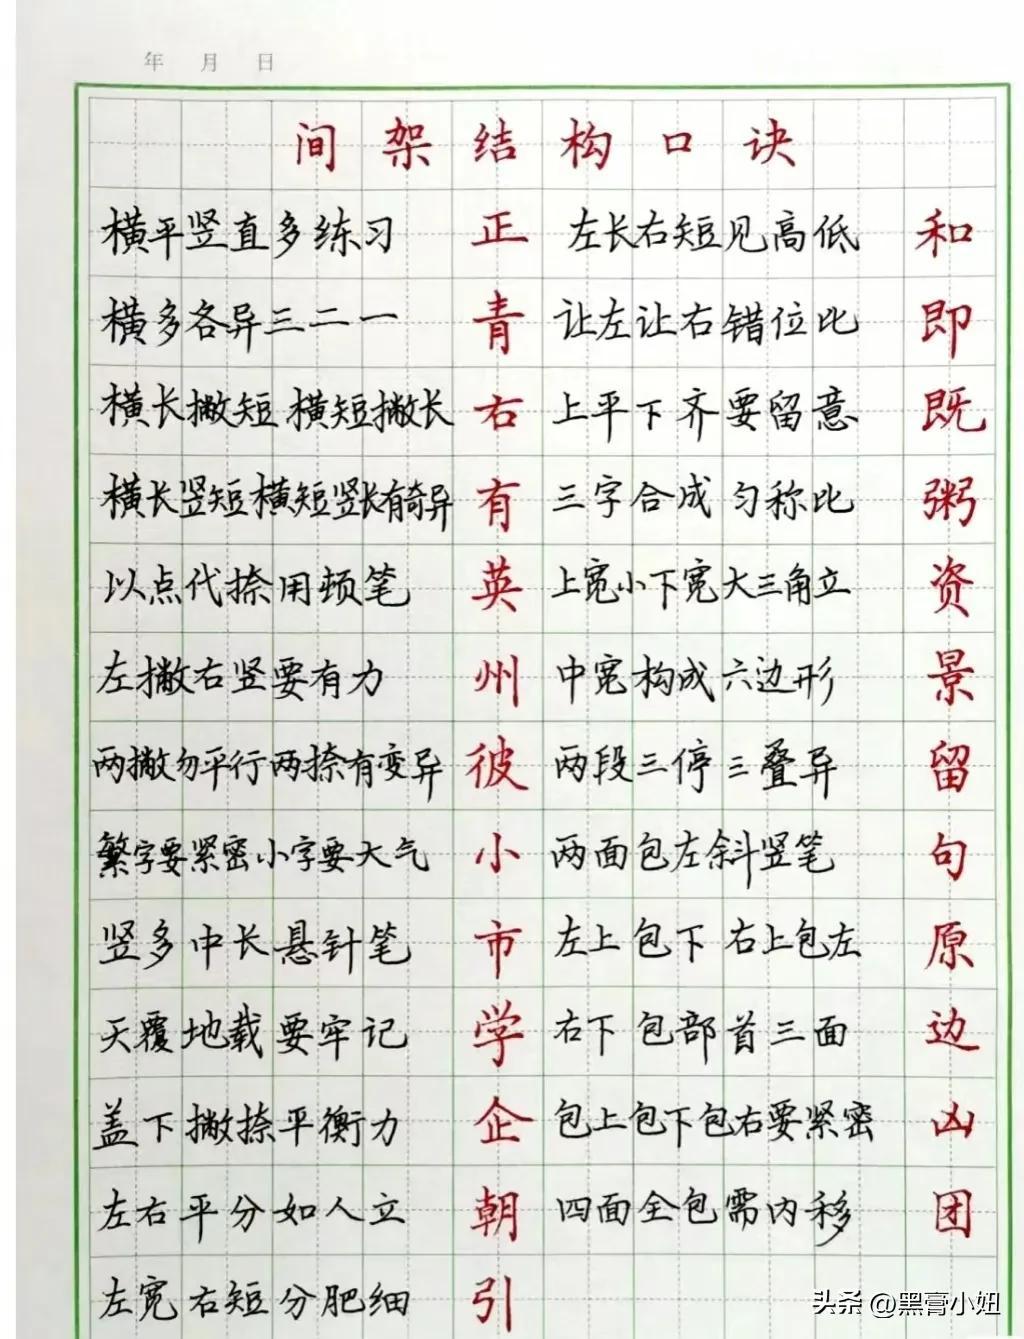 年 月 日
间架结构口诀
横平竖直多练习 正 左长右短见高低 和
横多各异三二一 青 让左让右错位比 即
横长撇短 横短撇长 右 上平下齐要留意 既
横长竖短横短竖长有奇异 有 三字合成匀称比 粥
以点代捺用顿笔 英 上宽小下宽大三角立 资
左撇右竖要有力 州 中宽构成六边形 景
两撇勿平行两捺有变异 彼 两段三停三叠异 留
繁字要紧密小字要大气 小 两面包左斜竖笔 句
竖多中长悬针笔 市 左上包下 右上包左 原
天覆地载要牢记 学 右下包部首三面 边
盖下撇捺平衡力 企 包上包下包右要紧密 凶
左右平分如人立 朝 四面全包需内移 团
左宽右短分肥细 引
头条 @黑膏小妞